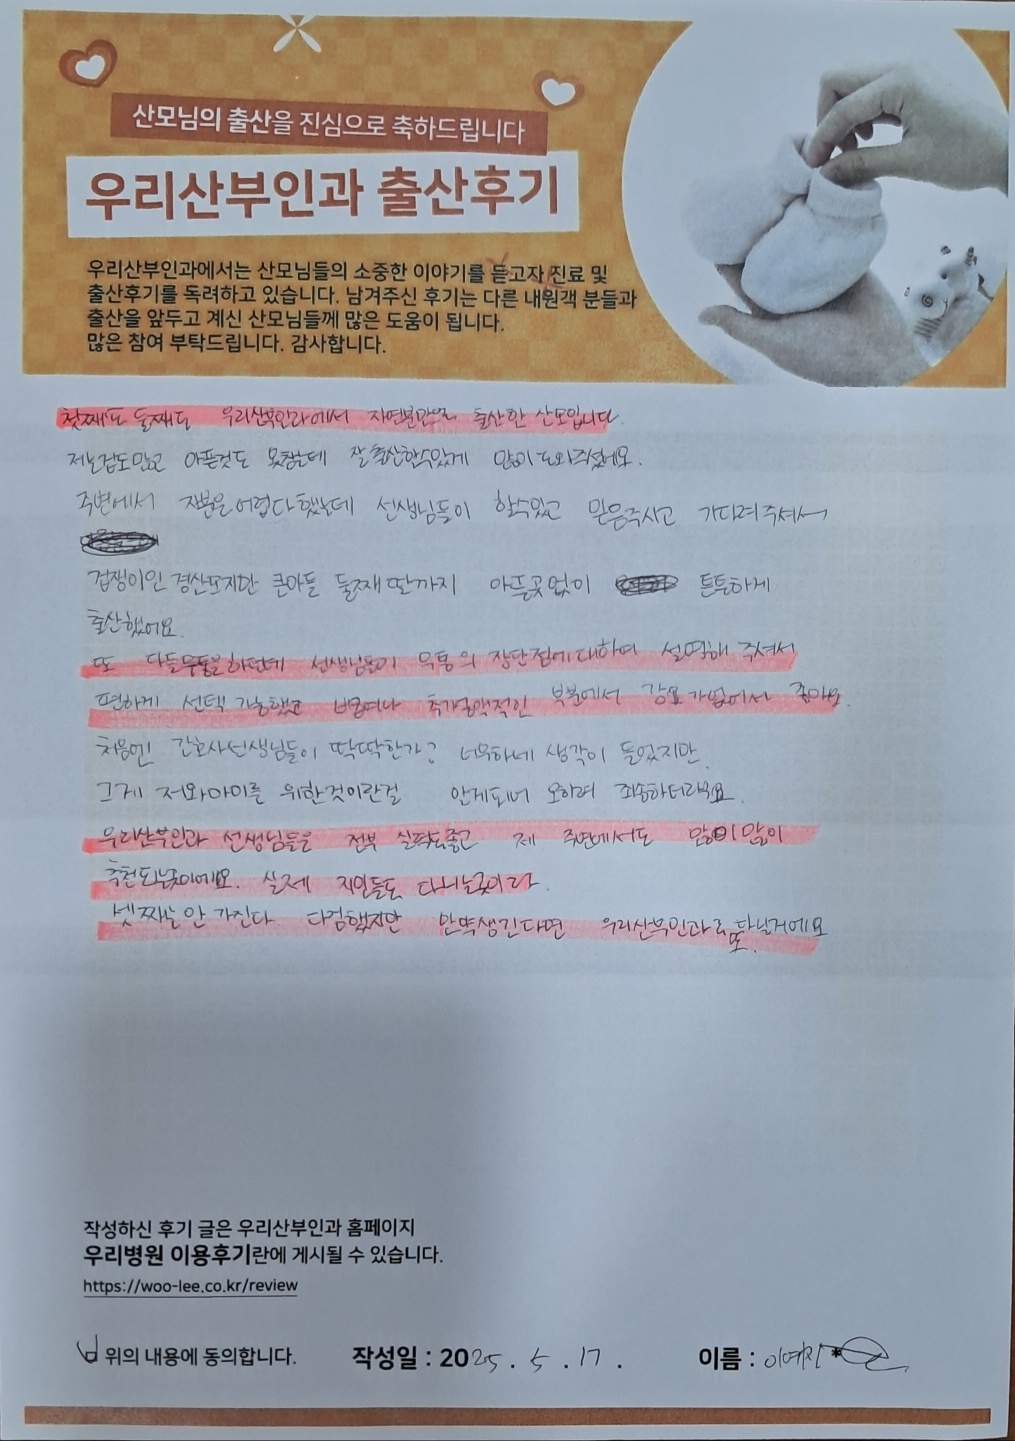 산모님의 출산을 진심으로 축하드립니다
우리산부인과 출산후기
우리산부인과에서는 산모님들의 소중한 이야기를 듣고자 진료 및
출산후기를 독려하고 있습니다. 남겨주신 후기는 다른 내원객 분들과
출산을 앞두고 계신 산모님들께 많은 도움이 됩니다.
많은 참여 부탁드립니다. 감사합니다.
첫째도 둘째도 우리산부인과에서 자연분만으로 출산한 산모입니다.
저는겁도많고 아픈것도 못참는데 잘출산할수있게 많이도와주셨어요.
주변에서 자분은어렵다했는데 선생님들이 할수있고 믿음주시고 기다려주셔서
겁쟁이인 경산모지만 큰아들 둘째딸까지 아픈곳없이 튼튼하게
출산했어요.
또 다들무통을하던데 선생님들이 무통의 장단점에대하여 설명해 주셔서
편하게 선택 가능했고 비용이나 추가금액적인 부분에서 강요가없어서 좋아요.
처음엔 간호사선생님들이 딱딱한가? 너무하네 생각이 들었지만
그게 저와아이를 위한것이란걸 알게되니 오히려 죄송하더라구요.
우리산부인과 선생님들은 전부 실력도좋고 제 주변에서도 많이많이
추천되는곳이에요. 실제 지인들도 다니는곳이라.
셋째는안가진다 다짐했지만 만약생긴다면 우리산부인과로 또 다닐거에요.
작성하신 후기 글은 우리산부인과 홈페이지
우리병원 이용후기란에 게시될 수 있습니다.
https://woo-lee.co.kr/review
위의 내용에 동의합니다. 작성일 : 2025 . 5 . 17 . 이름 : 이예지*